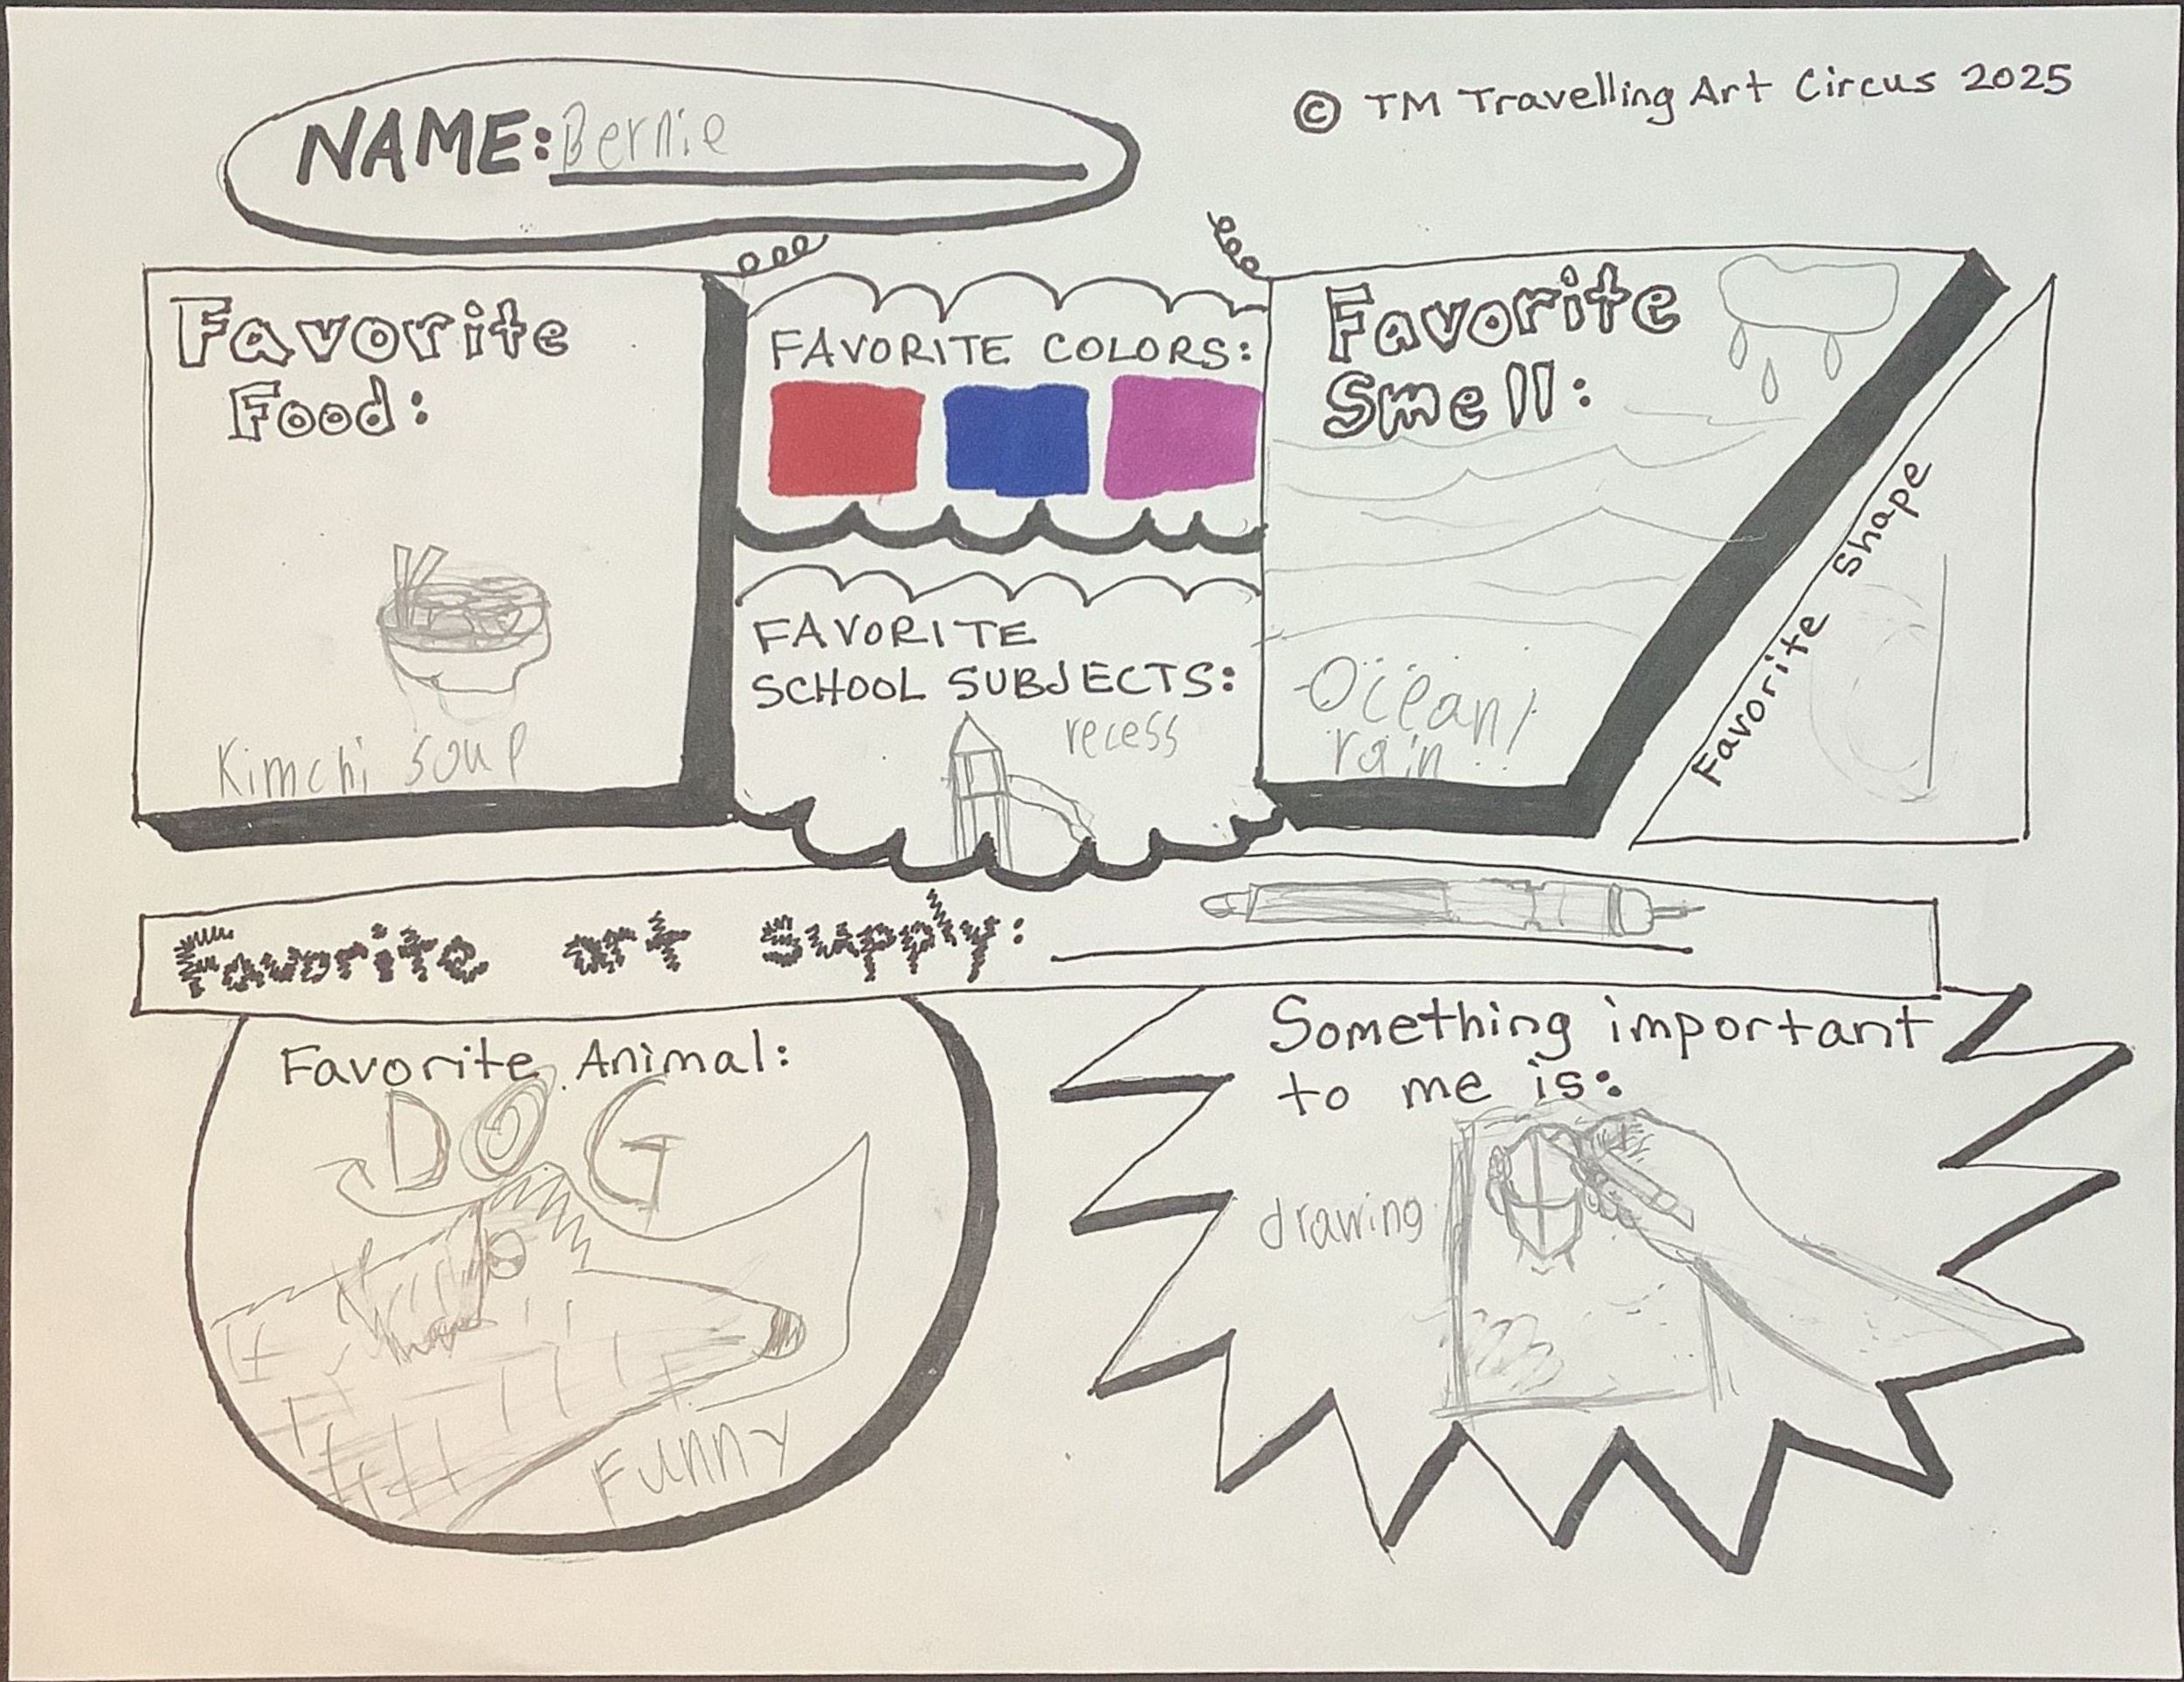 NAME: Bernie
© TM Travelling Art Circus 2025
Favorite
Food:
Kimchi soup
FAVORITE COLORS:
FAVORITE
SCHOOL SUBJECTS:
recess
Favorite
Smell:
Ocean/
rain
Favorite Shape
Favorite art supply:
Favorite Animal:
DOG
Funny
Something important
to me is:
drawing